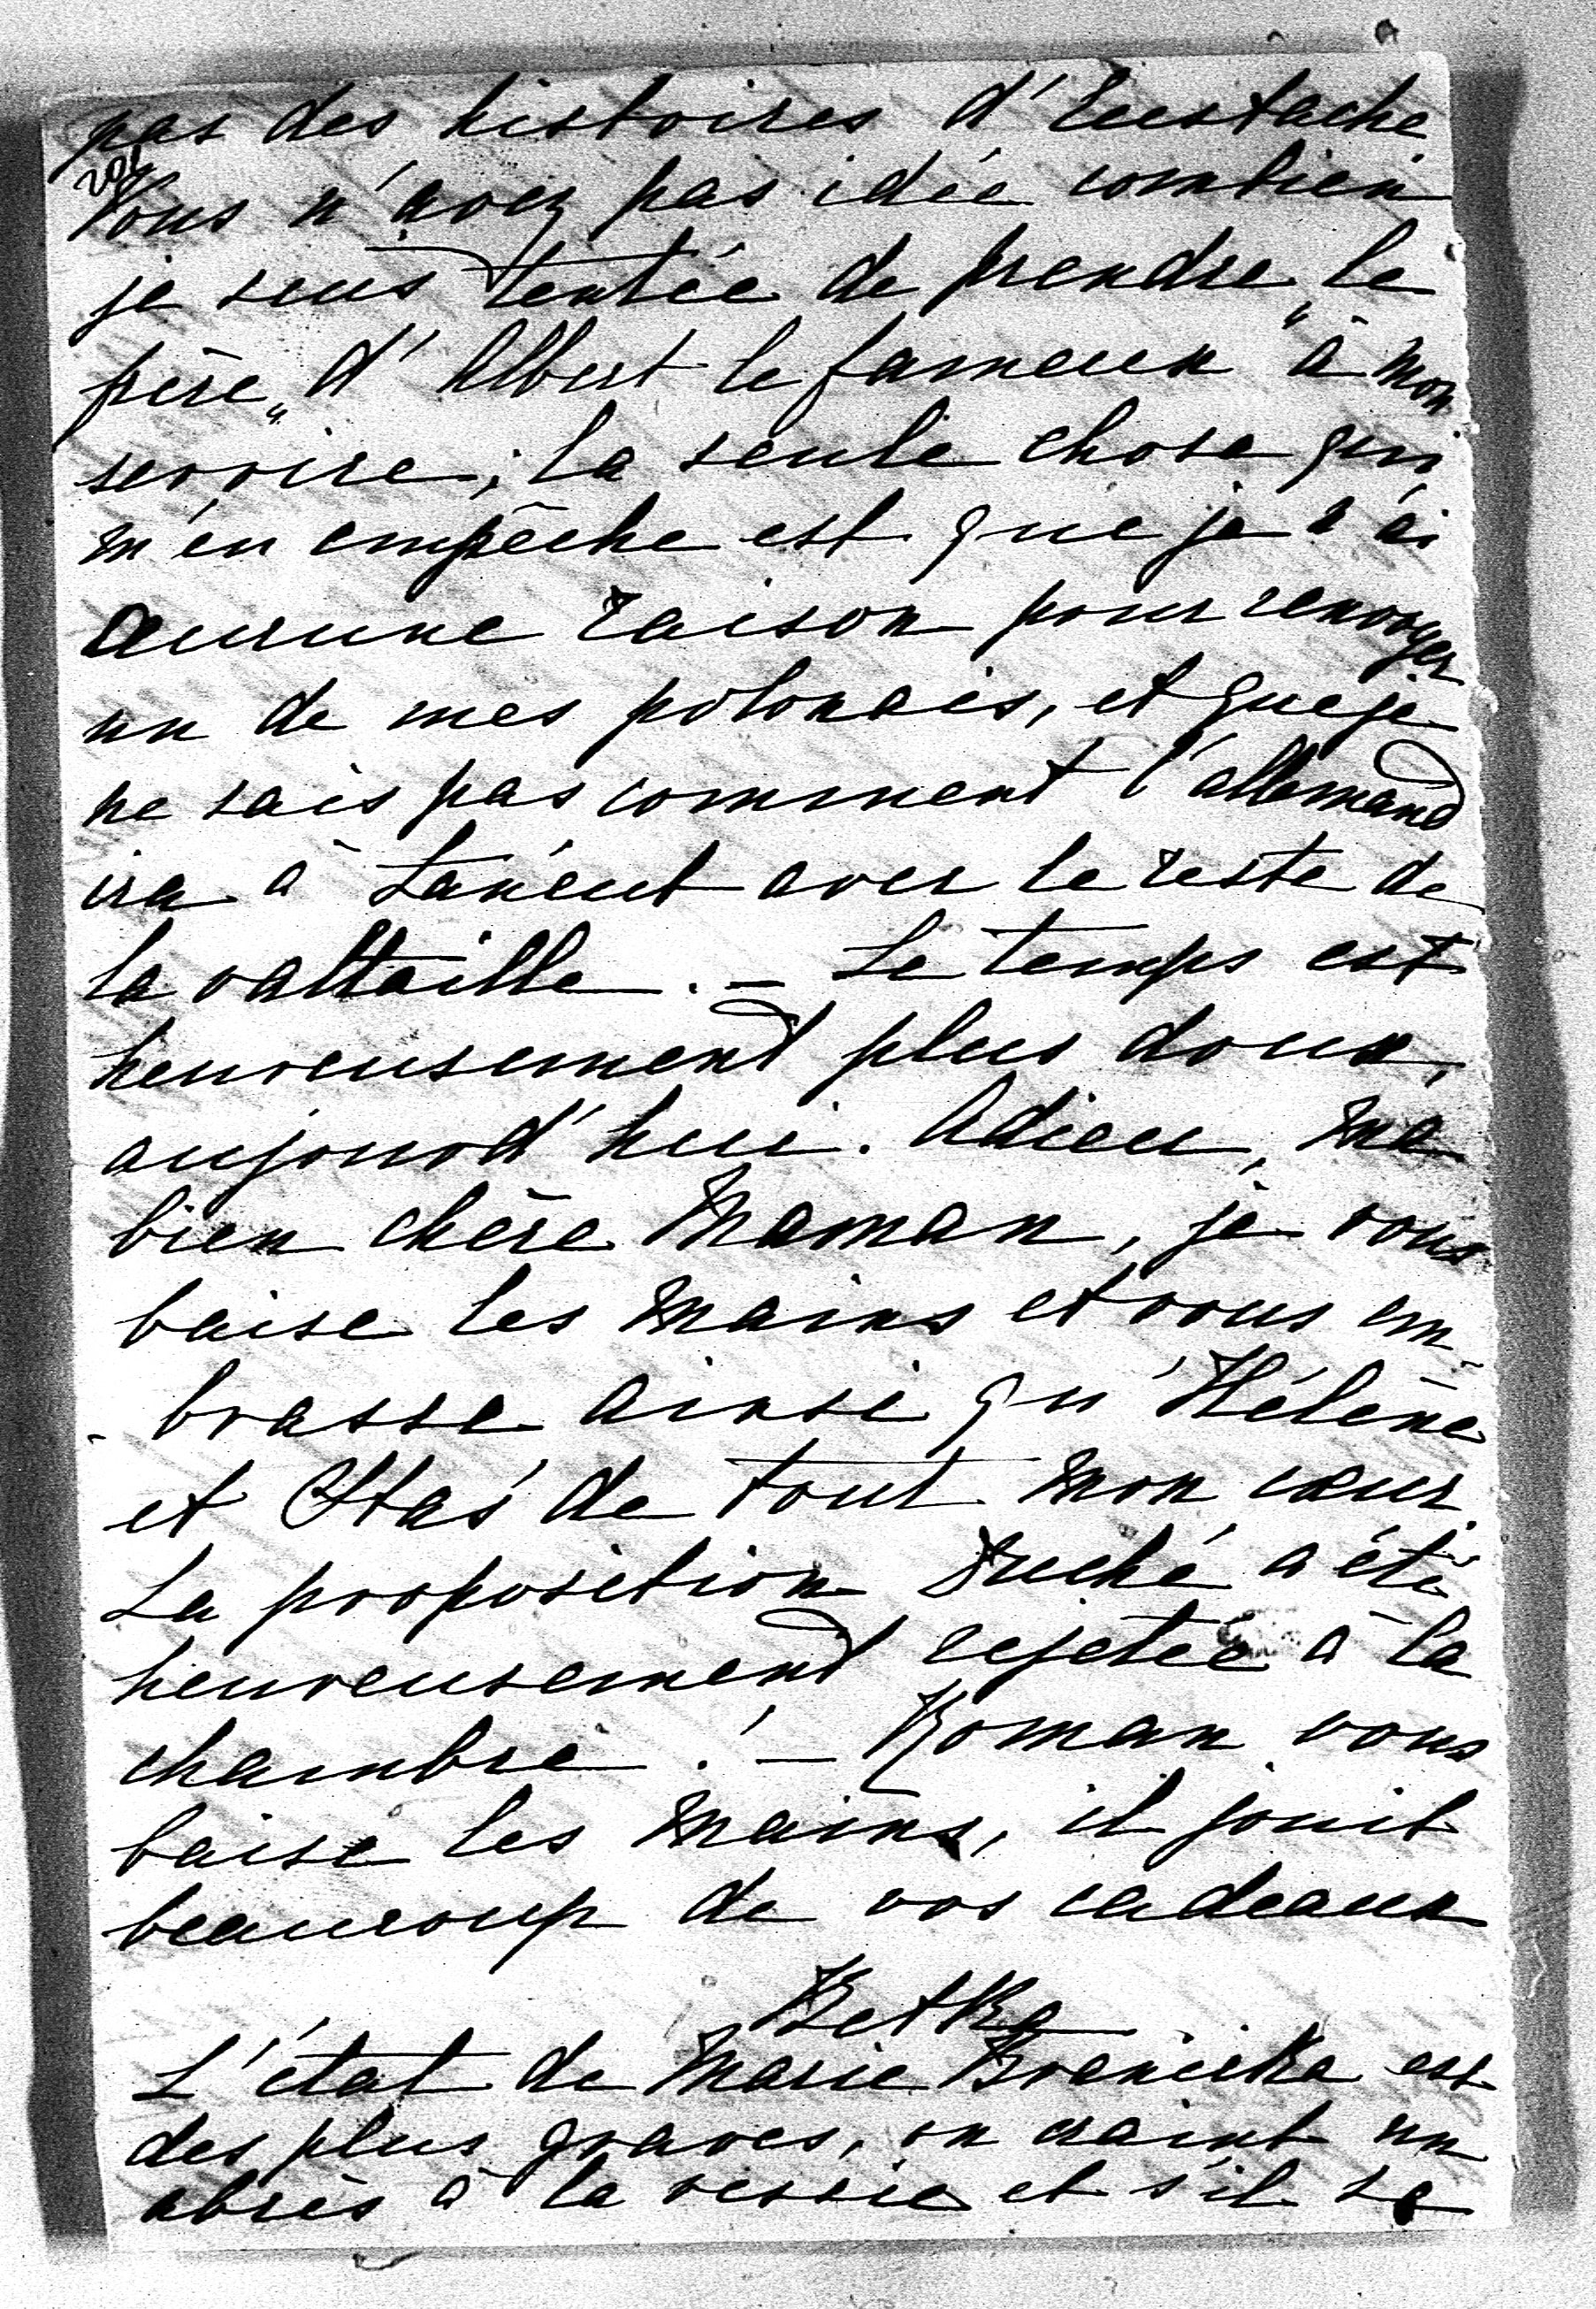 pas des histoires d'Eustache
Vous n'avez pas idée combien
je suis tentée de prendre „le
père„ d'Albert le fameux à mon
service; la seule chose qui
m'en empêche est que je n'ai
aucune raison pour renvoyer
un de mes polonais, et que je
ne sais pas comment l'allemand
ira à Łańcut avec le reste de
la valtaille. – Le temps est
heureusement plus doux,
aujourd'hui. Adieu, ma
bien chère Maman, je vous
baise les mains et vous em-
-brasse ainsi qu'Hélène
et Staś de tout mon cœur.
La proposition a été
heureusement rejetée à la
chambre. – Roman vous
baise les mains, il jouit
beaucoup de vos cadeaux
Betka
L'état de Marie Branicka est
des plus graves, on craint un
abcès à la vessie et s'il se